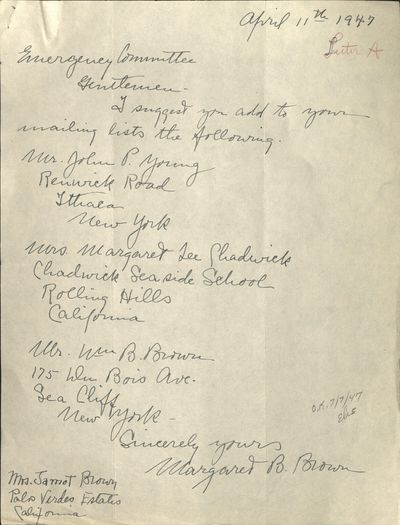 April 11th 1947
Emergency Committee
Gentlemen -
I suggest you add to your
mailing lists the following.
Mr. John P. Young
Renwick Road
Ithaca
New York
Mrs. Margaret Lee Chadwick
Chadwick Seaside School
Rolling Hills
California
Mr. Wm B. Brown
175 Du Bois Ave.
Sea Cliff
New York -
O.K. 7/7/47
Sincerely yours
Margaret B. Brown
Mrs. Jamot Brown
Palos Verdes Estates
California